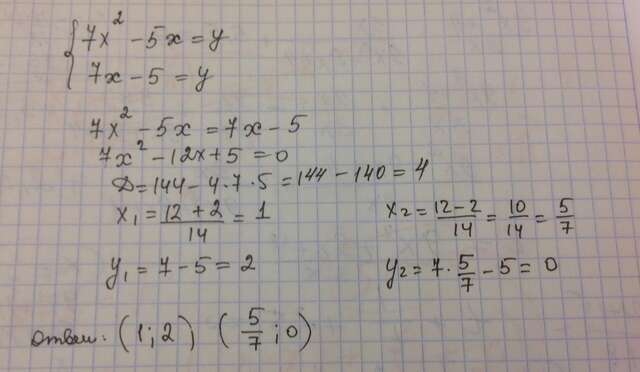 { 7x² - 5x = y
7x - 5 = y
7x² - 5x = 7x - 5
7x² - 12x + 5 = 0
D = 144 - 4 · 7 · 5 = 144 - 140 = 4
x₁ = (12 + 2)/14 = 1    x₂ = (12 - 2)/14 = 10/14 = 5/7
y₁ = 7 - 5 = 2    y₂ = 7 · 5/7 - 5 = 0
Ответ: (1; 2) (5/7; 0)